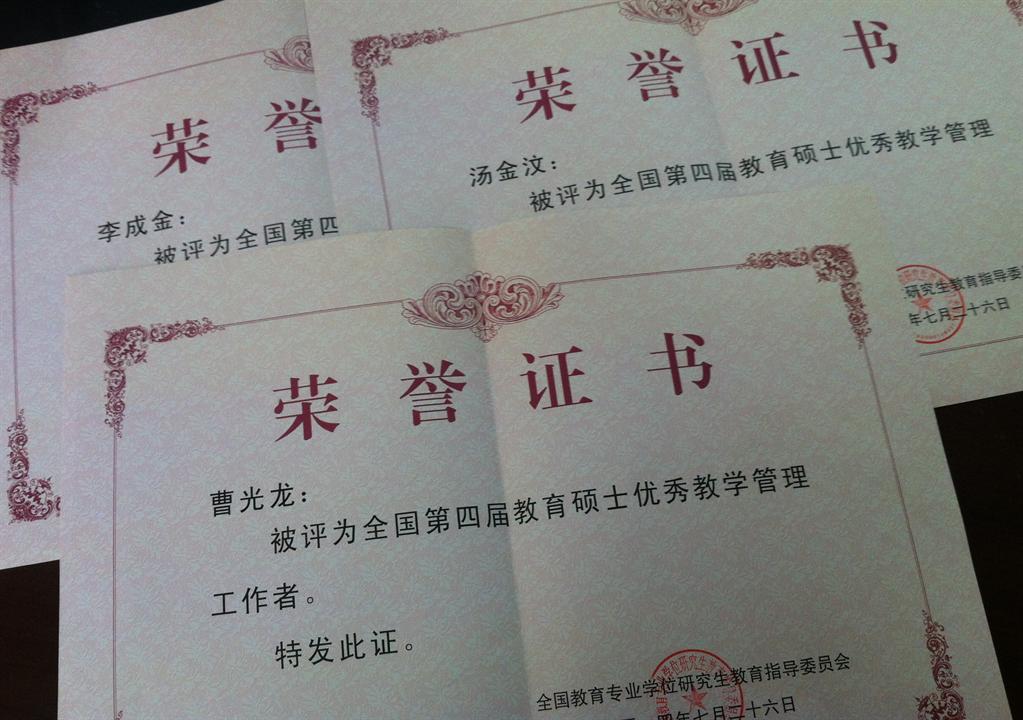 荣誉
李成金：
被评为全国第四
荣誉证书
汤金汶：
被评为全国第四届教育硕士优秀教学管理
研究生教育指导委员
年七月二十六日
荣誉证书
曹光龙：
被评为全国第四届教育硕士优秀教学管理
工作者。
特发此证。
全国教育专业学位研究生教育指导委员会
四年七月二十六日